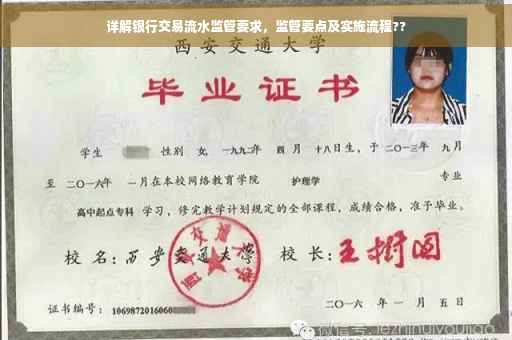 详解银行交易流水监管要求，监管要点及实施流程??
西安交通大学
毕业证书
学生 性别 女, 一九九二年 四 月 十八日生，于 二〇一三年 九月
至 二〇一六年 一月在本校网络教育学院 护理学 专业
高中起点专科 学习，修完教学计划规定的全部课程，成绩合格，准予毕业。
校 名：西安交通大学 校 长：王树国
证书编号：1069872016060
二〇一六 年 一 月 五 日
微信号: lezhihuiyoujiao